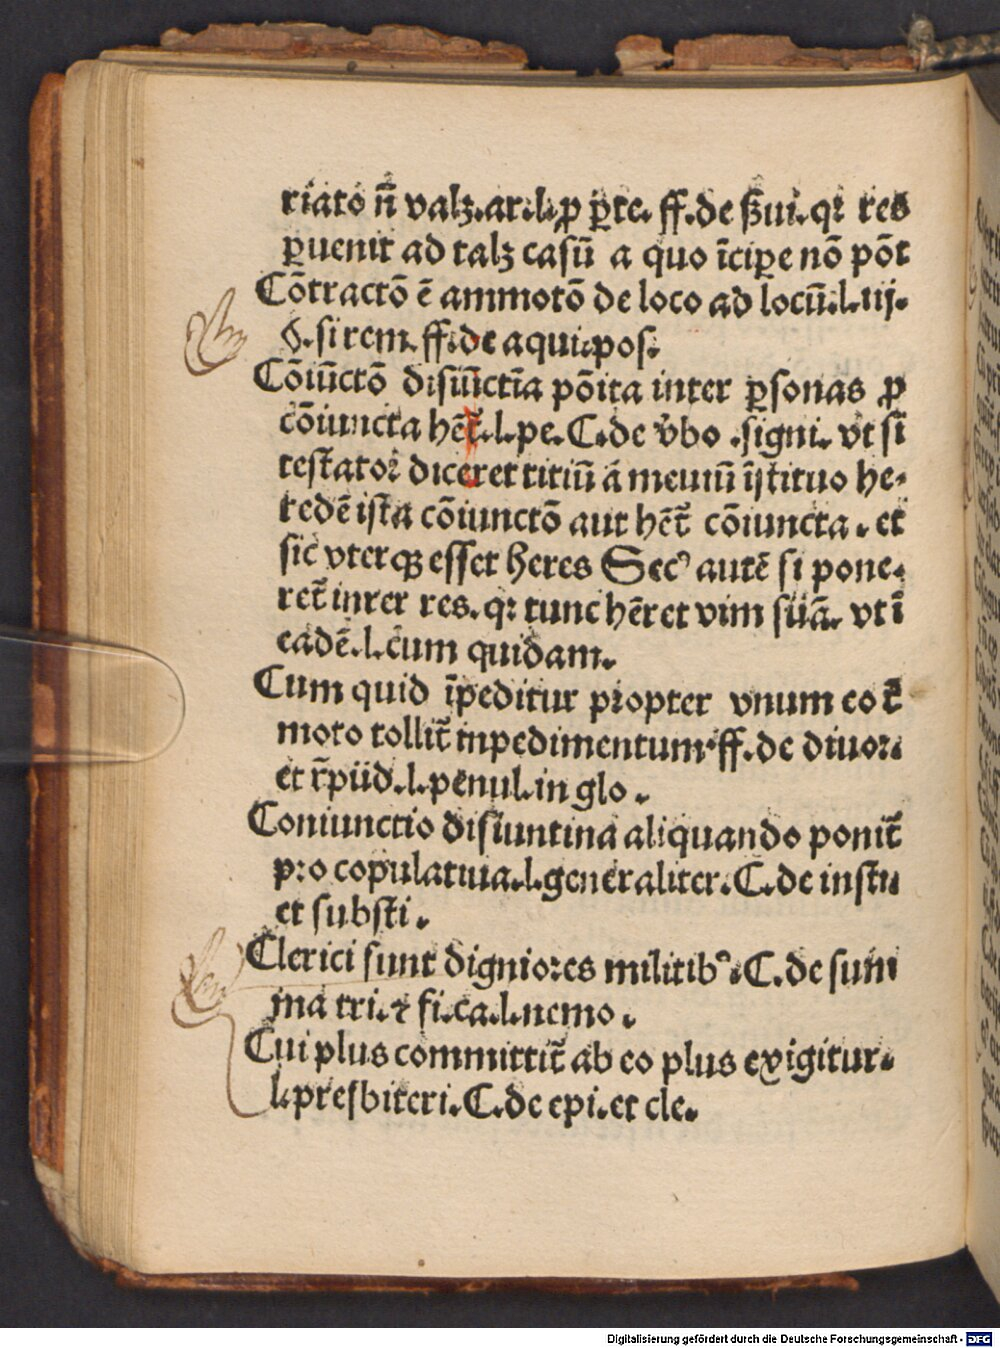 riatō n̄ valꝫ.ar.l.ꝓ ꝑte. ff.de ẜui.qꝛ res
ꝑuenit ad talꝫ casū a quo īciꝑe nō pōt
Cōtractō ē ammotō de loco ad locū.l.iij.
§.si rem.ff.de aqui.pos.
Cōiūctō disiūctīa pōita inter ꝑsonas ꝓ
cōiuncta hēt̄.l.pe.C.de v̄bo .signi. vt si
testatoꝛ diceret titiū ā meuiū īstituo he-
redē ista cōiunctō aut hēt̄ cōiuncta . et
sic vterqꝫ esset heres Secꝰ autē si pone-
ret̄ inter res.qꝛ tunc hēret vim suā. vt ī
eadē.l.cum quidam.
Cum quid īpeditur pꝛopter vnum eo t̄
moto tollit̄ inpedimentum.ff.de diuoꝛ.
et r̄pud.l.penul.in glo .
Coniunctio disiuntina aliquando ponit̄
pꝛo copulatiua.l.generaliter.C.de insti
et substi .
Clerici sunt digniores militibꝰ.C.de sum
ma tri.⁊ fi.ca.l.nemo .
Cui plus committit̄ ab eo plus exigitur.
l.presbiteri.C.de epi.et cle.
Digitalisierung gefördert durch die Deutsche Forschungsgemeinschaft - DFG